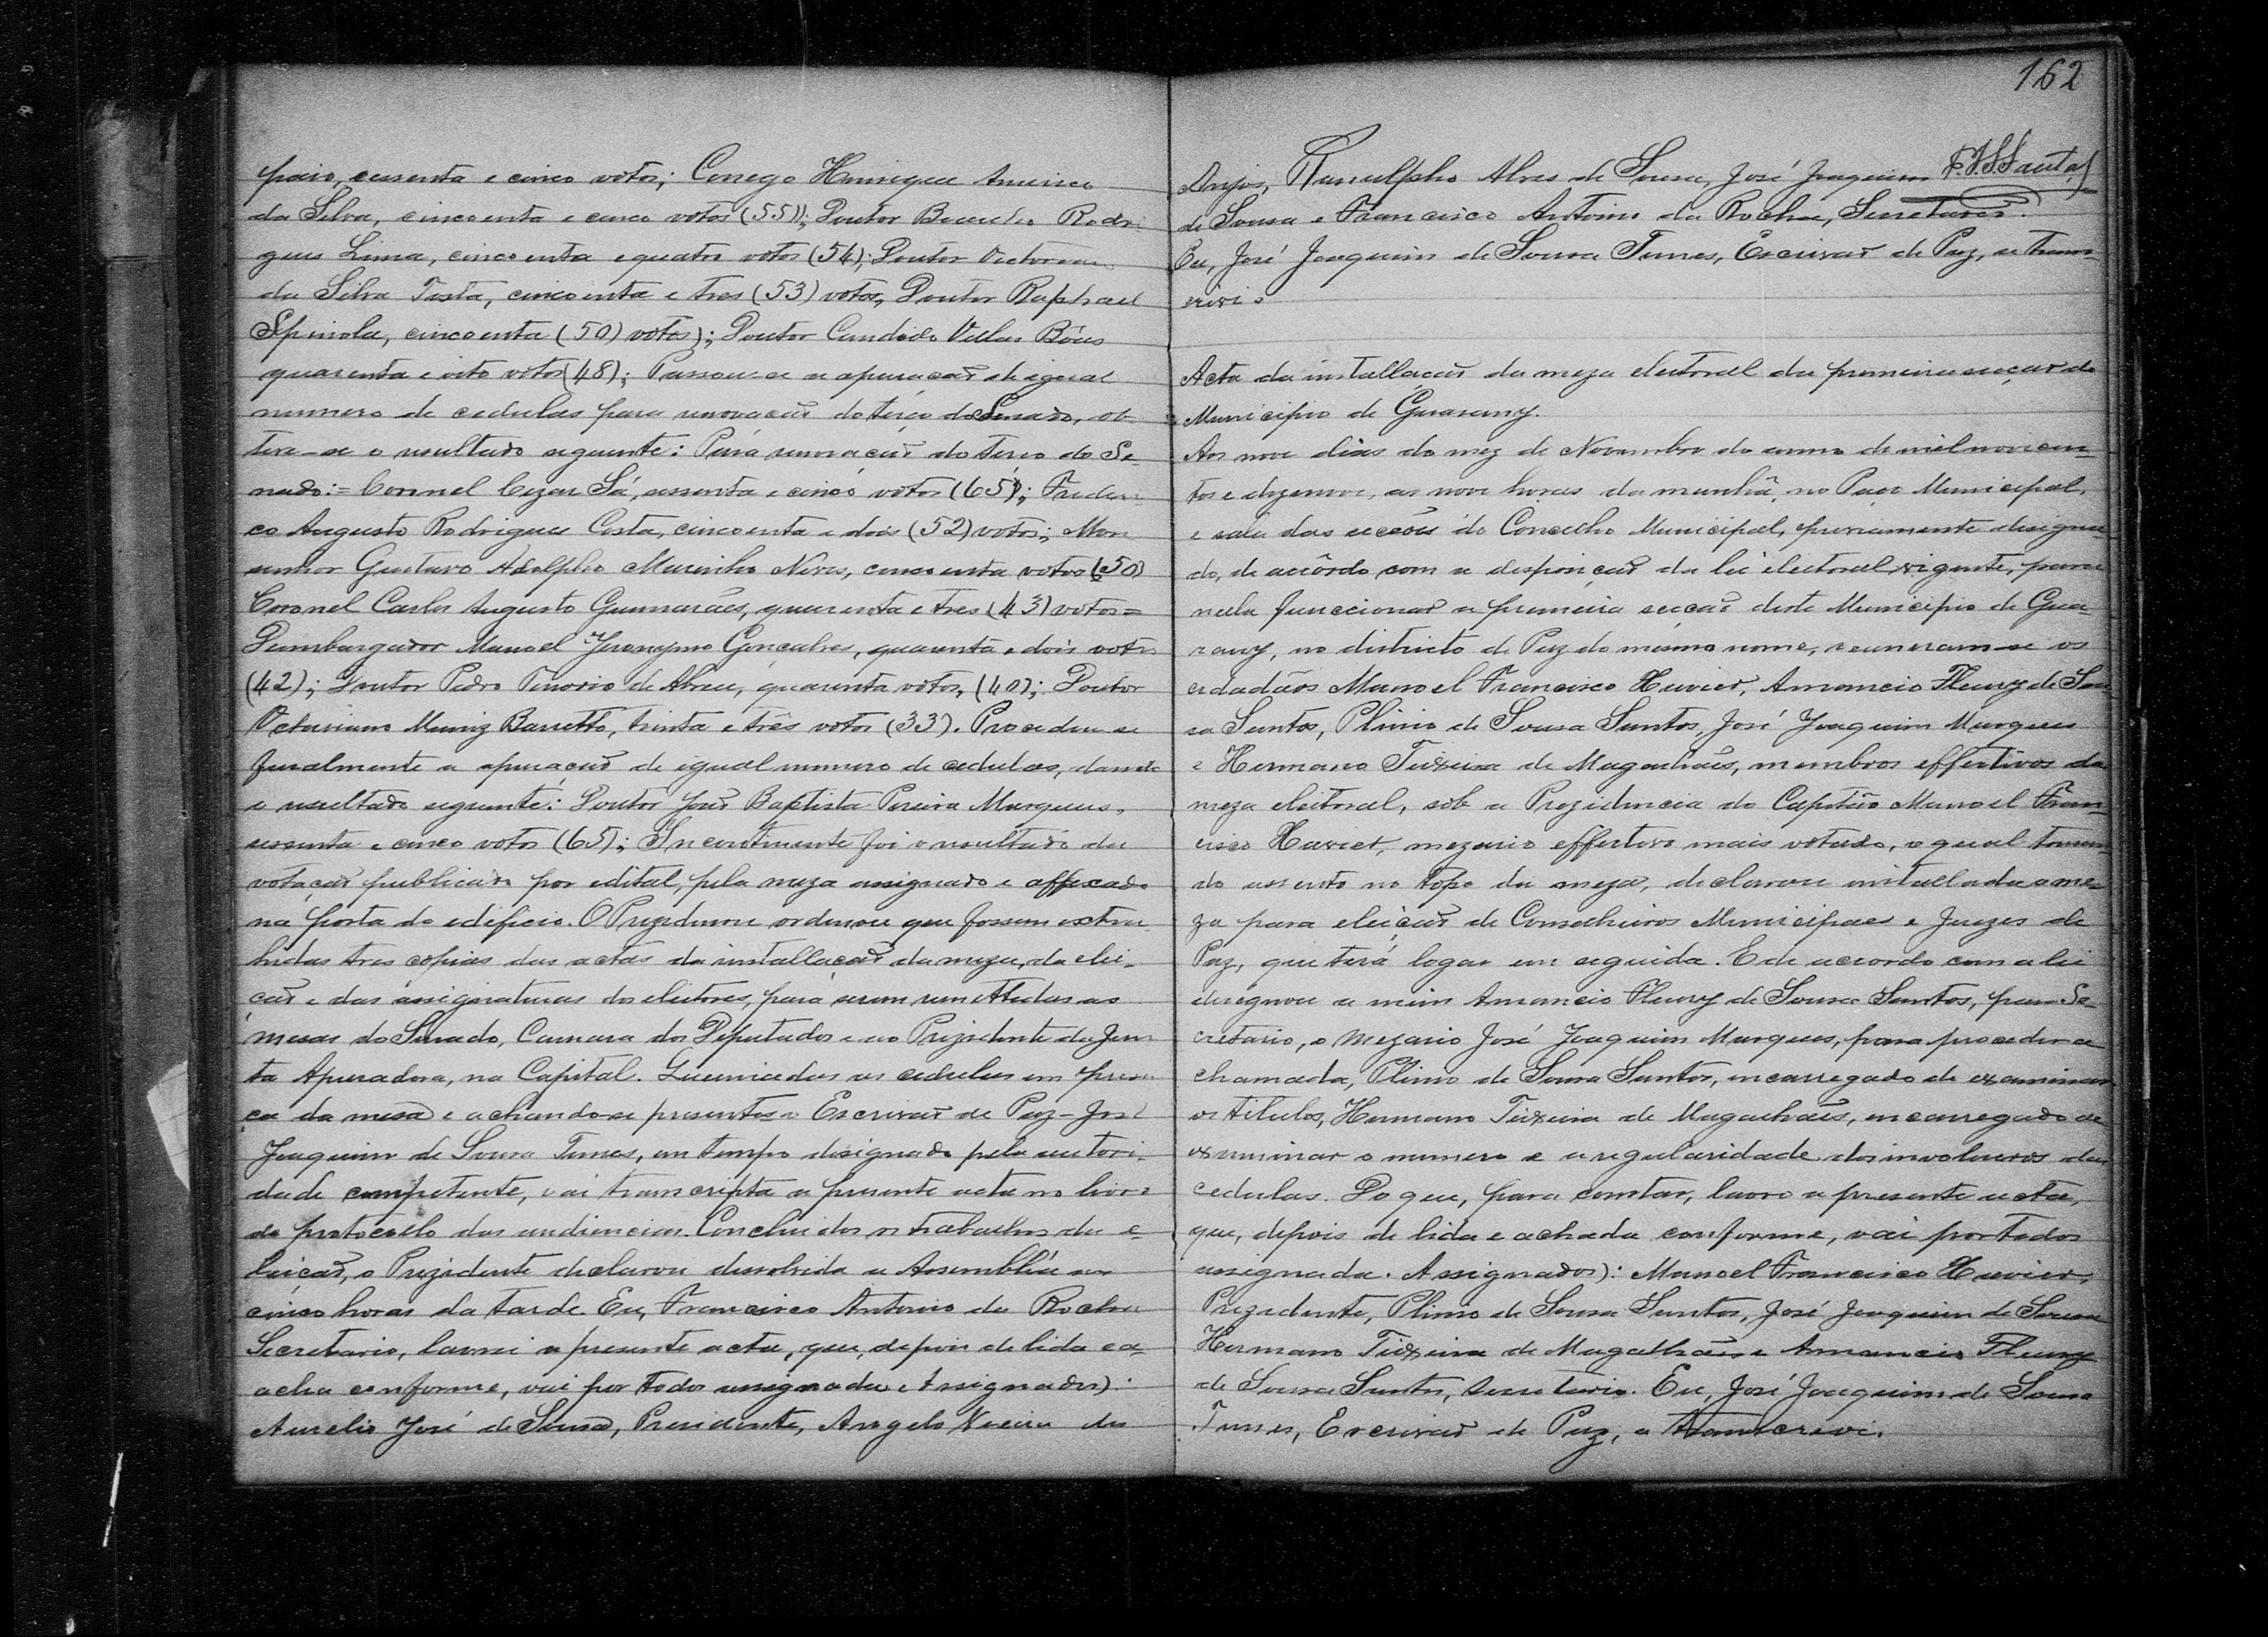 paio, cessenta e cinco votos; Conego Henrique Americo
da Silva, cincoenta e cinco votos (55); Doutor Rodri
gues Lima, cincoenta e quatro votos (54); Doutor
da Silva Tosta, cincoenta e tres (53) votos, Doutor Raphael
Spinola, cincoenta (50) votos); Doutor Candido Villas Bôas
quarenta e oito votos (48); Passou-se a apuração de igual
numero de cedulas para renovação do terço do Senado, ob
teve-se o resultado seguinte: Para renovação do terço do Se-
nado:= Coronel Cezar Sá, sessenta e cinco votos (65); Frederi
co Augusto Rodrigues Costa, cincoenta e dois (52) votos; Mon
senhor Gustavo Adolpho Marinho Neves, cincoenta votos (50)
Coronel Carlos Augusto Guimarães, quarenta e tres (43) votos=
Dezembargador Manoel Jeronymo Gonçalves, quarenta e dois votos
(42); Doutor Pedro Tenorio de Abreu, quarenta votos, (40); Doutor
Octaviano Muniz Barretto, trinta e três votos (33). Procedeu-se
finalmente a apuração de igual numero de cedulas, dando
o resultado seguinte: Doutor João Baptista Pereira Marques,
sessenta e cinco votos (65); Incontinente foi o resultado da
votação publicado por edital, pela meza assignado e affixado
na porta do edificio. O Prezidente ordenou que fossem extra
hidas tres copias das actas da installação da meza, da elei-
ção e das assignaturas dos eleitores, para serem remettidas as
mesas do Senado, Camara dos Deputados e ao Prezidente da Jun
ta Apuradora, na Capital. as cedulas em presen
ça da mesa e achando-se presente o Escrivão de Paz - José
Joaquim de Sousa Tunes, em tempo designado pela autori-
dade competente, vai transcripta a presente acta no livro
de protocollo das audiencias. Concluidos os trabalhos da e-
leição, o Prezidente declarou dissolvida a Assembléa as
cinco horas da tarde. Eu, Francisco Antonio da Rocha
Secretario, lavrei a presente acta, que, depois de lida e a-
acha conforme, vai por todos assignada. (Assignados):
Aurelio José de Sousa, Presidente, Angelo Vieira dos
162
Anjos, Ranulpho Alves de Sousa, José Joaquim
de Sousa e Francisco Antonio da Rocha, Secretario.
Eu, José Joaquim de Sousa Tunes, Escrivão de Paz, a trans-
crivi.
Acta da installação da meza eleitoral da primeira secção do
Municipio de Guarany.
Aos nove dias do mez de Novembro do anno de mil novecen-
tos e dezenove, as nove horas da manhã, no Paço Municipal,
e sala das secções do Conselho Municipal, previamente designa-
do, de accôrdo com a disposição da lei eleitoral vigente, para
nella funccionar a primeira secção deste Municipio de Gua-
rany, no districto de Paz do mesmo nome, reuneram-se os
cidadãos Manoel Francisco Xavier, Amancio Fleury de Sou
sa Santos, Plinio de Sousa Santos, José Joaquim Marques
e Hermano Teixeira de Magalhães, membros effectivos da
meza eleitoral, sob a Prezidencia do Capitão Manoel Fran-
cisco Xavier, mezario effectivo mais votado, o qual toman-
do assento no topo da meza, declarou installada a me-
za para eleição de Conselheiros Municipaes e Juizes de
Paz, que terá logar em seguida. E de accordo com a lei
designou a mim Amancio Fleury de Sousa Santos, para Se-
cretario, o mezario José Joaquim Marques, para proceder a
chamada, Plinio de Sousa Santos, encarregado de examinar
os titulos, Hermano Teixeira de Magalhães, encarregado de
examinar o numero e a regularidade dos involucros das
cedulas. Do que, para constar, lavro a presente acta,
que, depois de lida e achada conforme, vai por todos
assignada. Assignados): Manoel Francisco Xavier,
Prezidente, Plinio de Sousa Santos, José Joaquim de Sousa
Hermano Teixeira de Magalhães e Amancio Fleury
de Sousa Santos, secretario. Eu, José Joaquim de Sousa
Tunes, Escrivão de Paz, a transcrevi.